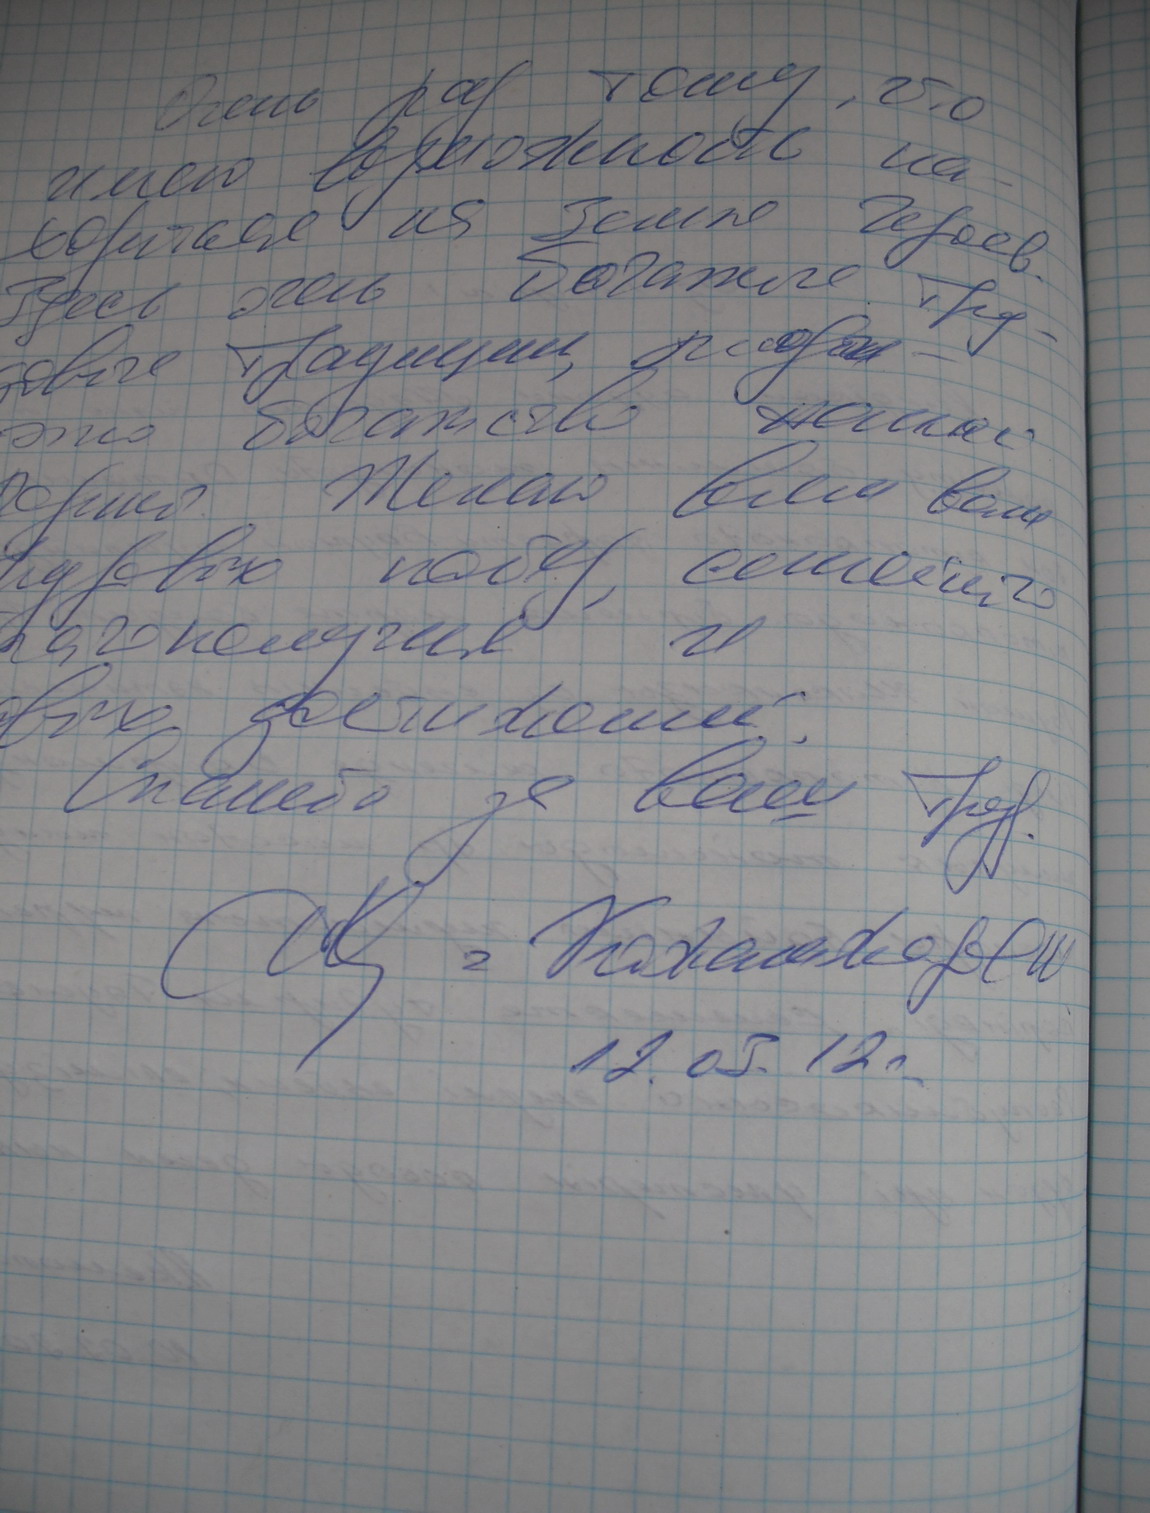 Очень рад тому, что
имею возможность на-
ходиться на Земле Героев.
Здесь очень богатые тру-
довые традиции, люди -
это богатство нашей
Родины. Желаю всем вам
трудовых побед, семейного
благополучия и
новых достижений.
Спасибо за ваш труд.
12.05.12г.